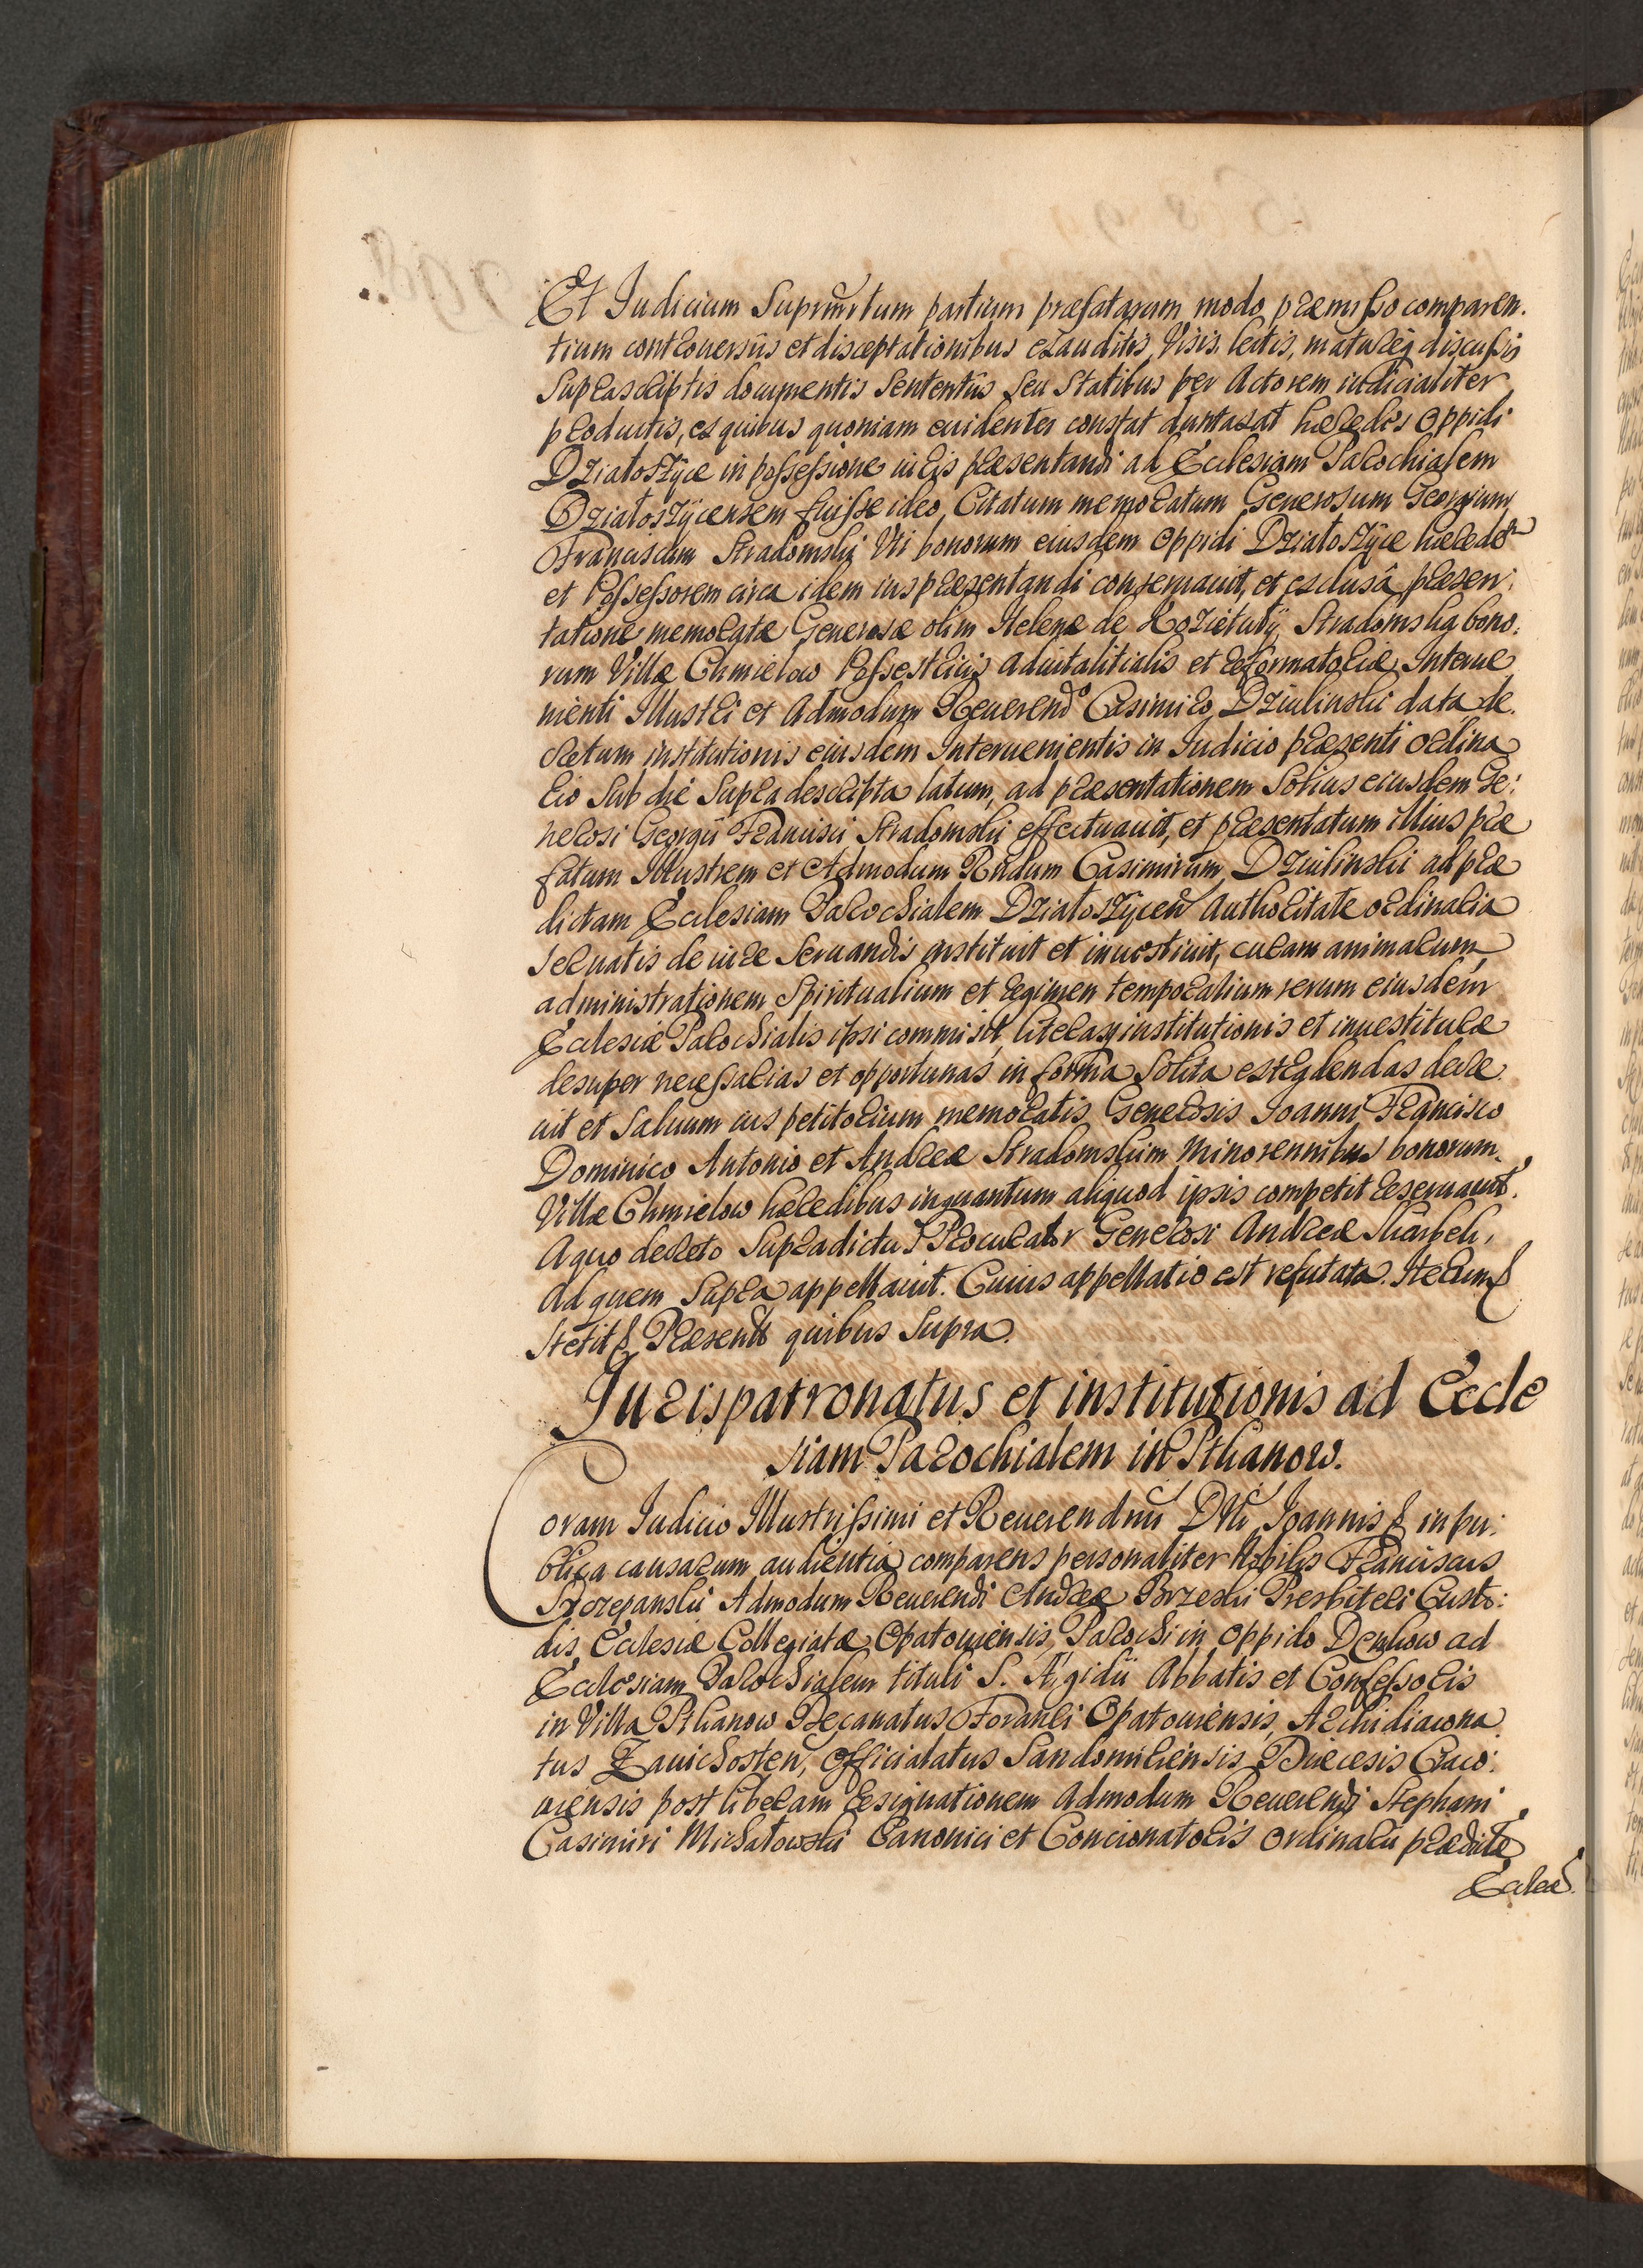 Et Judicium Suprascriptum partium præfatarum modo præmisso comparen.
tium controuersijs et disceptationibus exauditis, Visis lectis, matureq discussis
Suprascriptis documentis Sententijs seu Statibus per Actorem iudicialiter
productis, ex quibus quoniam euidenter constat duntaxat hæredes Oppidi
Działoszÿce in possessione iuris præsentandi ad Ecclesiam Parochialem
Działoszÿcensem fuisse ideo, Citatum memoratum Generosum Georgium
Franciscum Stradomski Vti bonorum eiusdem Oppidi Działoszÿce hærede
et Possessorem circa idem ius præsentandi conseruauit, et exclusâ præsen:
tatione memoratæ Generosæ olim Helenæ de Stradomska bono:
rum Villæ Chmielow Possestricis aduitalitialis et reformatoriæ Interue
nienti Illustri et Admodum Reuerendo Casimiro Dziulinski data, de.
cretum institutionis eiusdem Interuenientis in Judicio præsenti ordina
rio Sub die Supra descripta latum, ad præsentationem Solius eiusdem Ge:
nerosi Georgij Francisci Stradomski effectuauit, et præsentatum illius præ
fatum Illustrem et Admodum Rndum Casimirum Dziulinski ad præ
dictam Ecclesiam Parochialem Działoszÿcen Authoritate ordinaria
seruatis de iure Seruandis instituit et inuestiuit, curam animarum
administrationem Spiritualium et regimen temporalium rerum eiusdem
Ecclesiæ Parochialis ipsi commisit, literasq institutionis et inuestituræ
desuper necessarias et opportunas in forma Solita extradendas decre
uit et Saluum ius petitorium memoratis Generosis Joanni Francisco
Dominico Antonio et Andreæ Stradomskim Minorennibus bonorum
Villæ Chmielow hæredibus inquantum aliquod ipsis competit reseruauit.
A quo decreto Supradictus Procurator Generosi Andreæ Skarbek,
Ad quem Supra appellauit. Cuius appellatio est refutata. Iterum
stetit Præsent quibus Supra.
Jurispatronatus et institutionis ad Eccle
siam Parochialem in Pthanow.
Coram Judicio Illustrissimi et Reuerendmi Dni Joannis in pu:
blica causarum audientia comparens personaliter Nobilis Franciscus
Admodum Reuerendi Andreæ Brzeski Presbiteri Custo:
dis Ecclesiæ Collegiatæ Opatouiensis, Parochi in oppido Denkow ad
Ecclesiam Parochialem tituli S. Ægidii Abbatis et Confessoris
in Villa Pthanow Decanatus Foranei Opatouiensis, Archidiacona
tus Zauichosten, Officialatus Sandomiriensis Diæcesis Craco:
uiensis post liberam resignationem Admodum Reuerendi Stephani
Casimiri Michałowski Canonici et Concionatoris Ordinarii prædictæ
Eccleæ